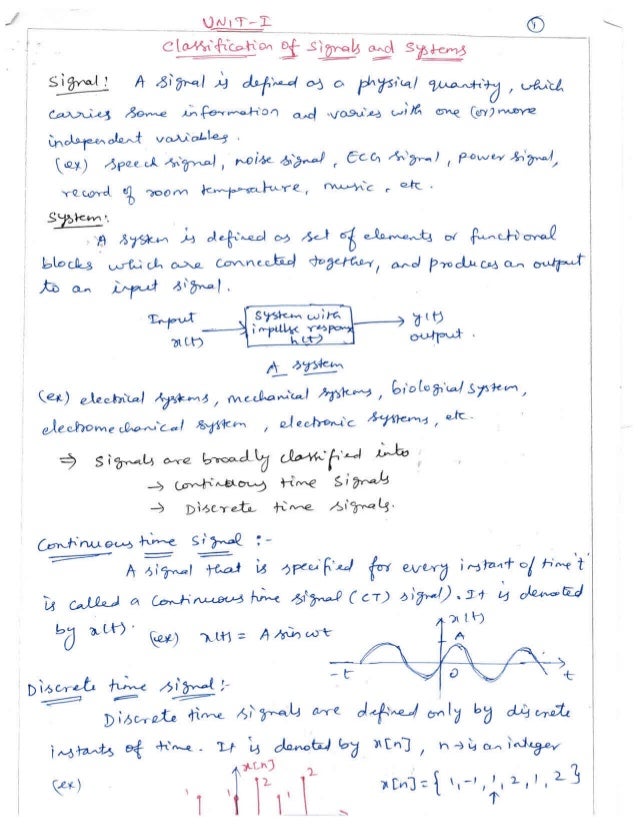 UNIT-I
1
Classification of Signals and Systems
Signal: A signal is defined as a physical quantity, which
carries some information and varies with one (or) more
independent variables.
(ex) speech signal, noise signal, ECG signal, power signal,
record of room temperature, music, etc.
System:
A system is defined as set of elements or functional
blocks which are connected together, and produces an output
to an input signal.
Input x(t) → System with impulse respons h(t) → y(t) output.
A system
(ex) electrical systems, mechanical systems, biological system,
electromechanical system, electronic systems, etc.
⇒ Signals are broadly classified into
→ continuous time signals
→ Discrete time signals.
Continuous time signal :-
A signal that is specified for every instant of time 't'
is called a continuous time signal (CT) signal). It is denoted
by x(t). (ex) x(t) = A sin ωt
x(t)
A
-t 0 t
Discrete time signal :-
Discrete time signals are defined only by discrete
instants of time. It is denoted by x[n], n → is an integer
(ex) x[n] = { 1, -1, 1, 2, 1, 2 }
↑
x[n]
1 1 2 1 2